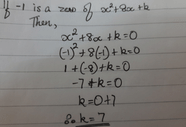 If -1 is a zero of x²+8x+k
Then,
x²+8x+k=0
(-1)²+8(-1)+k=0
1+(-8)+k=0
-7+k=0
k=0+7
So k=7